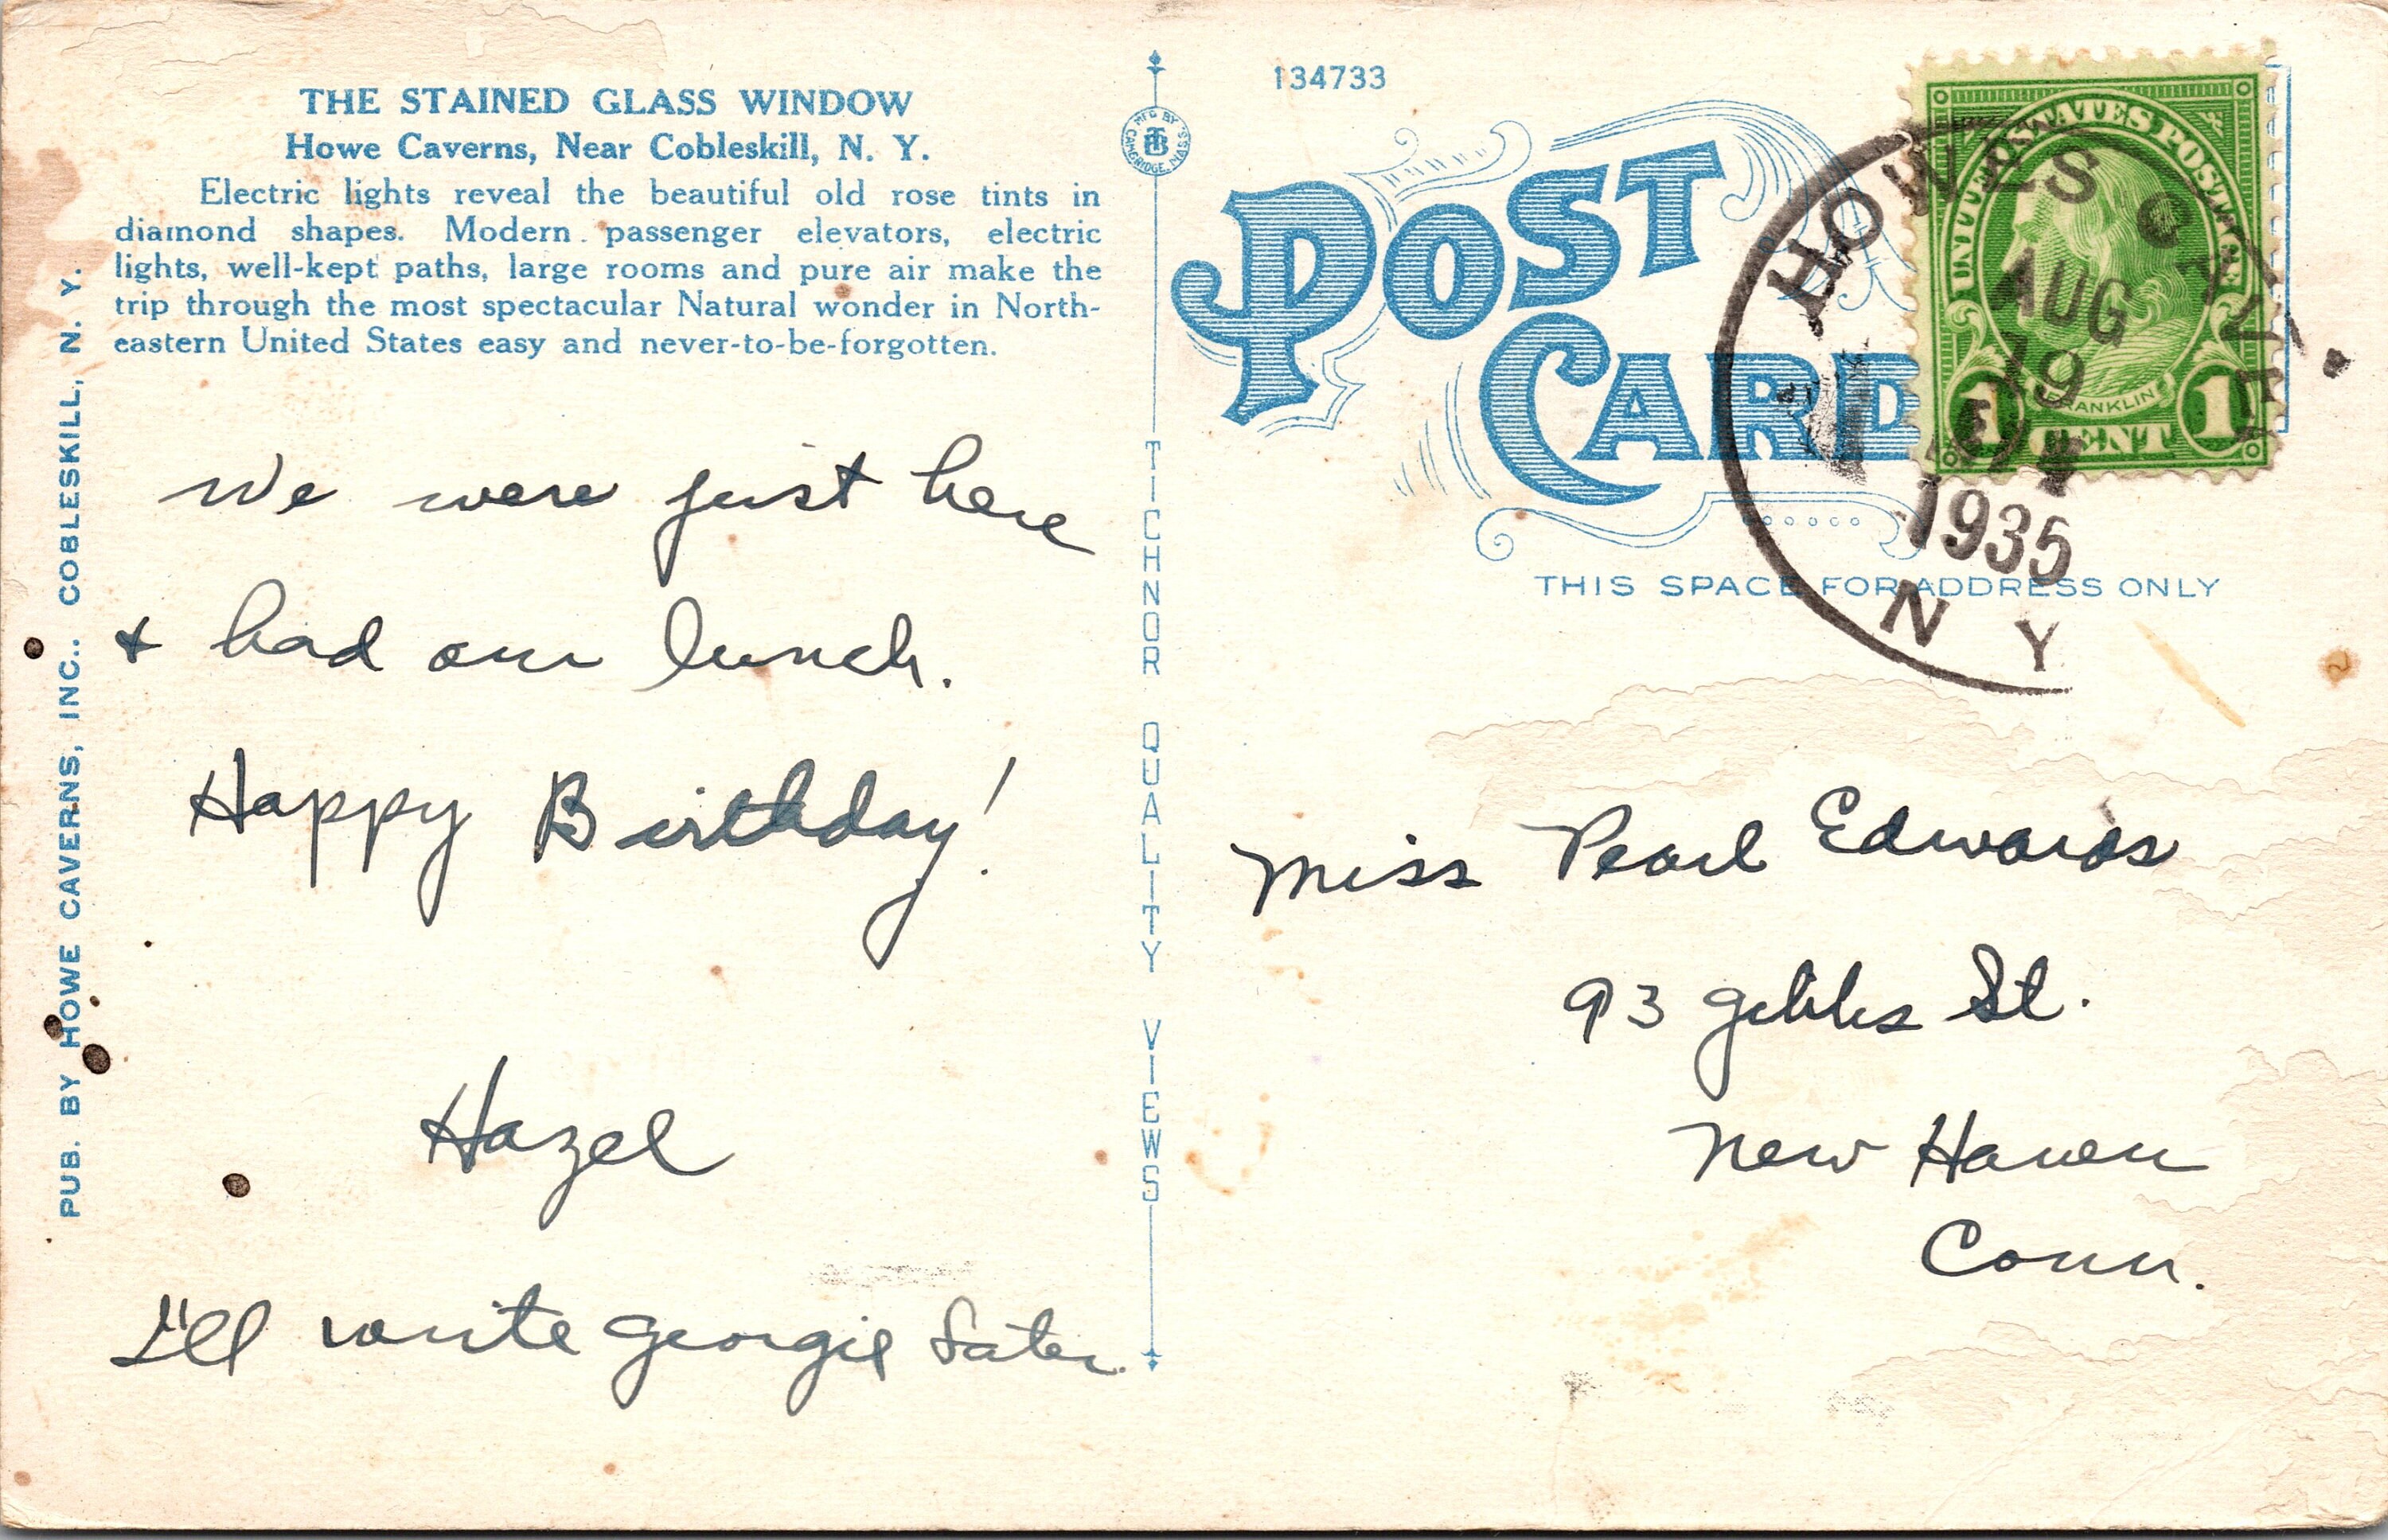 THE STAINED GLASS WINDOW
Howe Caverns, Near Cobleskill, N. Y.
Electric lights reveal the beautiful old rose tints in
diamond shapes. Modern passenger elevators, electric
lights, well-kept paths, large rooms and pure air make the
trip through the most spectacular Natural wonder in North-
eastern United States easy and never-to-be-forgotten.
PUB. BY HOWE CAVERNS, INC.. COBLESKILL, N. Y.
We were just here
& had our lunch.
Happy Birthday!
Hazel
I'll write Georgie later.
MFG BY
TB
CAMBRIDGE, MASS
TICHNOR QUALITY VIEWS
134733
POST
CARD
THIS SPACE FOR ADDRESS ONLY
UNITED STATES POSTAGE
FRANKLIN
1 CENT 1
HOWES CAVE
AUG
19
1935
N Y
Miss Pearl Edwards
93 Gibbs St.
New Haven
Conn.